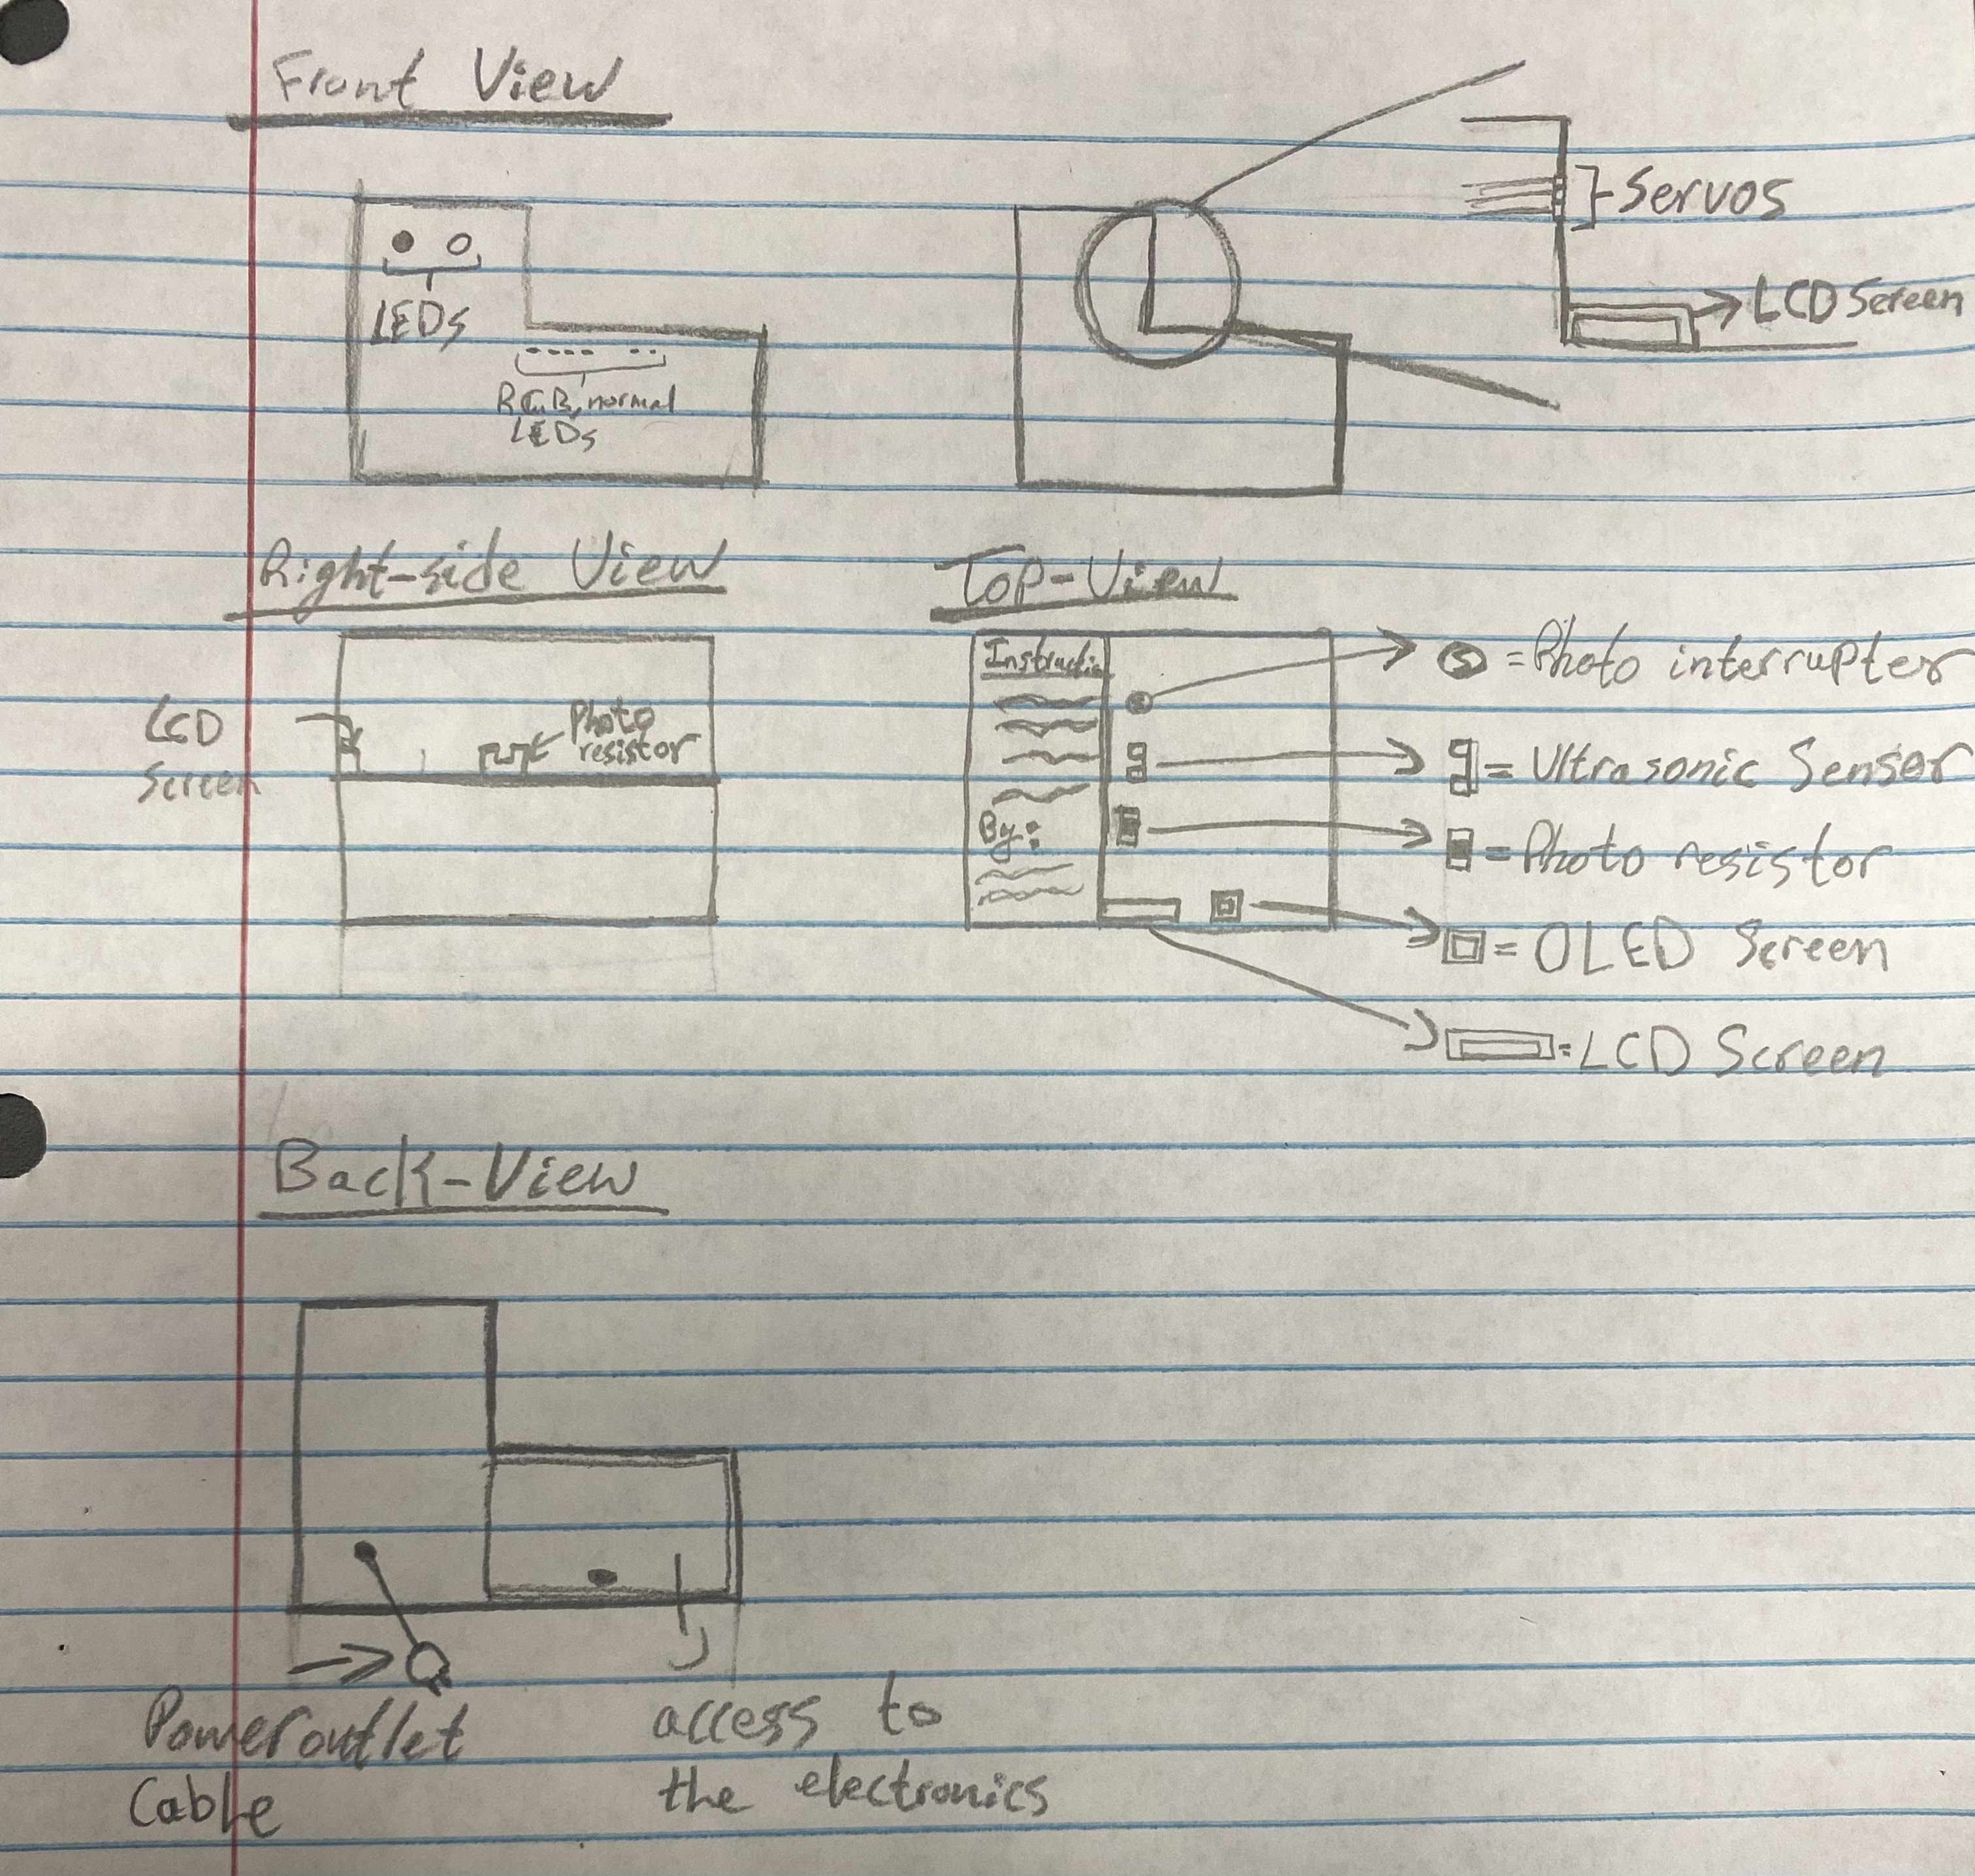 Front View
LEDs
RGB, normal
LEDs
Servos
LCD Screen
Right-side View
LCD
Screen
Photo
resistor
Top-View
Instructio
By:
S = Photo interrupter
= Ultrasonic Sensor
= Photo resistor
= OLED Screen
= LCD Screen
Back-View
Power outlet
Cable
access to
the electronics